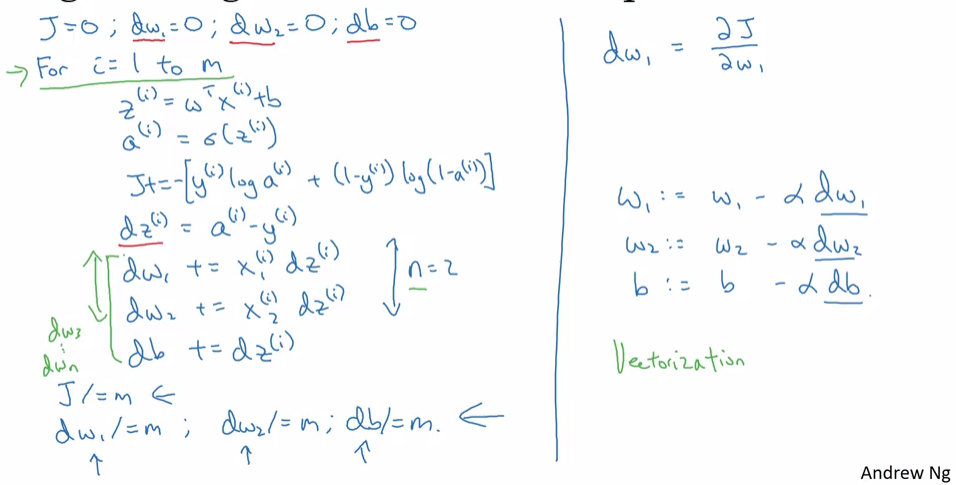 J=0 ; dw₁=0 ; dw₂=0 ; db=0
→ For i=1 to m
z⁽ⁱ⁾ = wᵀx⁽ⁱ⁾+b
a⁽ⁱ⁾ = σ(z⁽ⁱ⁾)
J+=-[y⁽ⁱ⁾ log a⁽ⁱ⁾ + (1-y⁽ⁱ⁾) log(1-a⁽ⁱ⁾)]
dz⁽ⁱ⁾ = a⁽ⁱ⁾-y⁽ⁱ⁾
dw₁ += x₁⁽ⁱ⁾ dz⁽ⁱ⁾
dw₂ += x₂⁽ⁱ⁾ dz⁽ⁱ⁾
n=2
db += dz⁽ⁱ⁾
dw₃
⋮
dwₙ
J/=m ←
dw₁/=m ; dw₂/=m ; db/=m. ←
dw₁ = ∂J/∂w₁
w₁ := w₁ - α dw₁
w₂ := w₂ - α dw₂
b := b - α db.
Vectorization
Andrew Ng